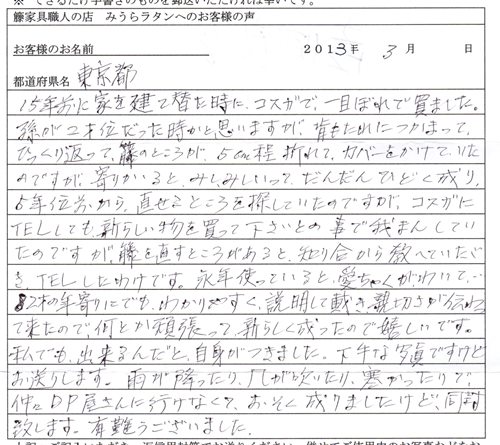 ※ できるだけ手書きのものを郵送いただければ幸いです。
籐家具職人の店 みうらラタンへのお客様の声
お客様のお名前 2013年 3月 日
都道府県名 東京都
15年前に家を建て替た時に、コスガで、一目ぼれで買ました。
孫が2才位だった時かと思いますが、背もたれにつかまって、
ひっくり返って、籐のところが、5cm程折れて、カバーをかけていた
のですが、寄りかかると、みしみしいって、だんだんひどく成り、
5年位前から、直せるところを探していたのですが、コスガに
TELしても、新らしい物を買って下さいとの事で我まんしてい
たのですが、籐を直すところがあると、知り合から教へていただ
き、TELしたわけです。永年使っていると、愛ちゃくがわいて、
82才の年寄りにでも、わかりやすく、説明して戴き、親切さが伝わっ
て来たので、何とか頑張って、新らしく成ったので嬉しいです。
でも、出来るんだと、自身がつきました。下手な写真ですけど
お送りします。雨が降ったり、風が吹いたり、寒かったりで、
仲々DP屋さんに行けなくて、おそく成りましたけど、同封
致します。有難うございました。